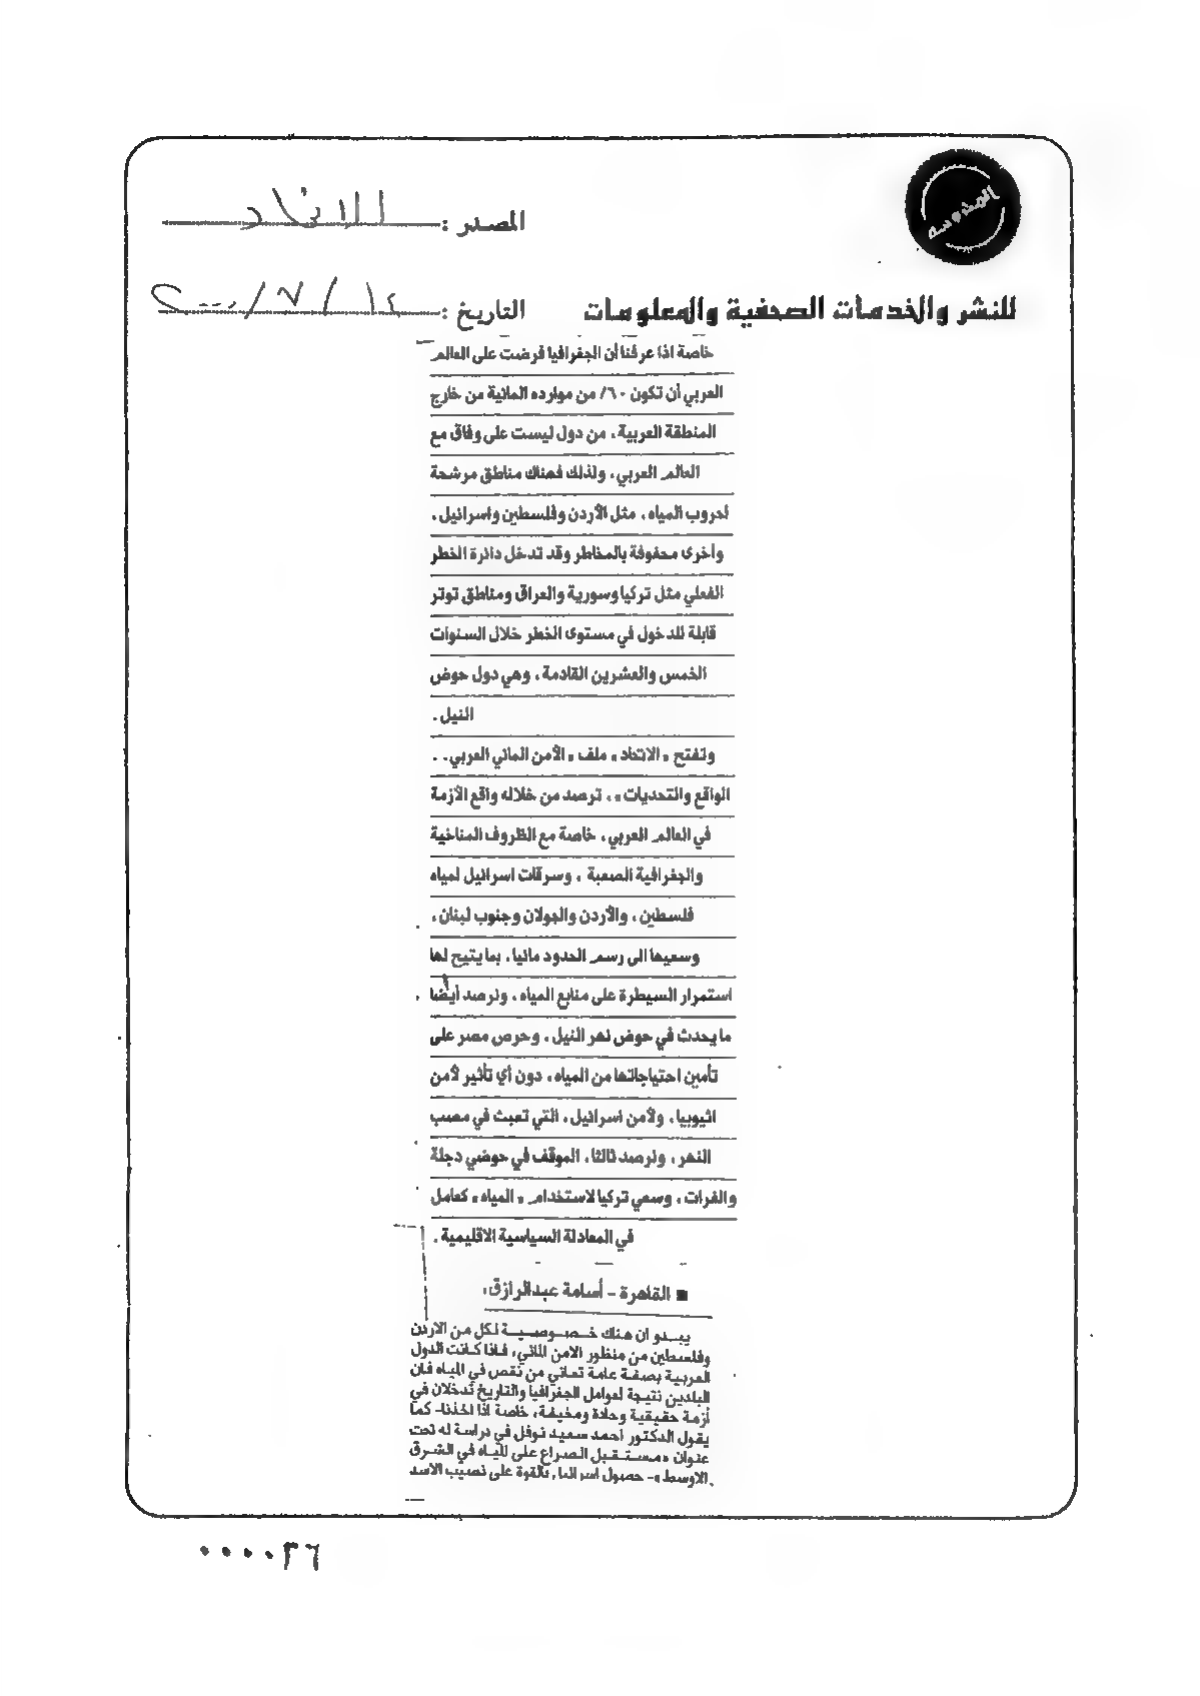 المحروسه
المصدر : الاتحاد
للنشر والخدمات الصحفية والمعلومات
التاريخ : ١٤ / ٧ / ٢٠٠٠
خاصة اذا عرفنا أن الجغرافيا فرضت على العالم
العربي أن تكون ٦٠٪ من موارده المائية من خارج
المنطقة العربية ، من دول ليست على وفاق مع
العالم العربي ، ولذلك فهناك مناطق مرشحة
لحروب المياه ، مثل الأردن وفلسطين واسرائيل .
وأخرى محفوفة بالمخاطر وقد تدخل دائرة الخطر
الفعلي مثل تركيا وسورية والعراق ومناطق توتر
قابلة للدخول في مستوى الخطر خلال السنوات
الخمس والعشرين القادمة ، وهي دول حوض
النيل .
وتفتح « الاتحاد » ملف « الأمن المائي العربي . .
الواقع والتحديات » ، ترصد من خلاله واقع الأزمة
في العالم العربي ، خاصة مع الظروف المناخية
والجغرافية الصعبة ، وسرقات اسرائيل لمياه
فلسطين ، والأردن والجولان وجنوب لبنان ،
وسعيها الى رسم الحدود مائيا ، بما يتيح لها
استمرار السيطرة على منابع المياه ، ونرصد أيضا
ما يحدث في حوض نهر النيل ، وحرص مصر على
تأمين احتياجاتها من المياه ، دون أي تأثير لأمن
اثيوبيا ، ولأمن اسرائيل ، التي تعبث في مصب
النهر ، ونرصد ثالثا ، الموقف في حوضي دجلة
والفرات ، وسعي تركيا لاستخدام « المياه » كعامل
في المعادلة السياسية الاقليمية .
■ القاهرة - أسامة عبدالرازق :
يبدو ان هناك خصوصية لكل من الاردن
وفلسطين من منظور الامن المائي، فاذا كانت الدول
العربية بصفة عامة تعاني من نقص في المياه فان
البلدين نتيجة لعوامل الجغرافيا والتاريخ تدخلان في
أزمة حقيقية وحادة ومخيفة، خاصة اذا اخذنا- كما
يقول الدكتور احمد سعيد نوفل في دراسة له تحت
عنوان «مستقبل الصراع على المياه في الشرق
الاوسط»- حصول اسرائيل بالقوة على نصيب الاسد
٠٠٠٠٣٦